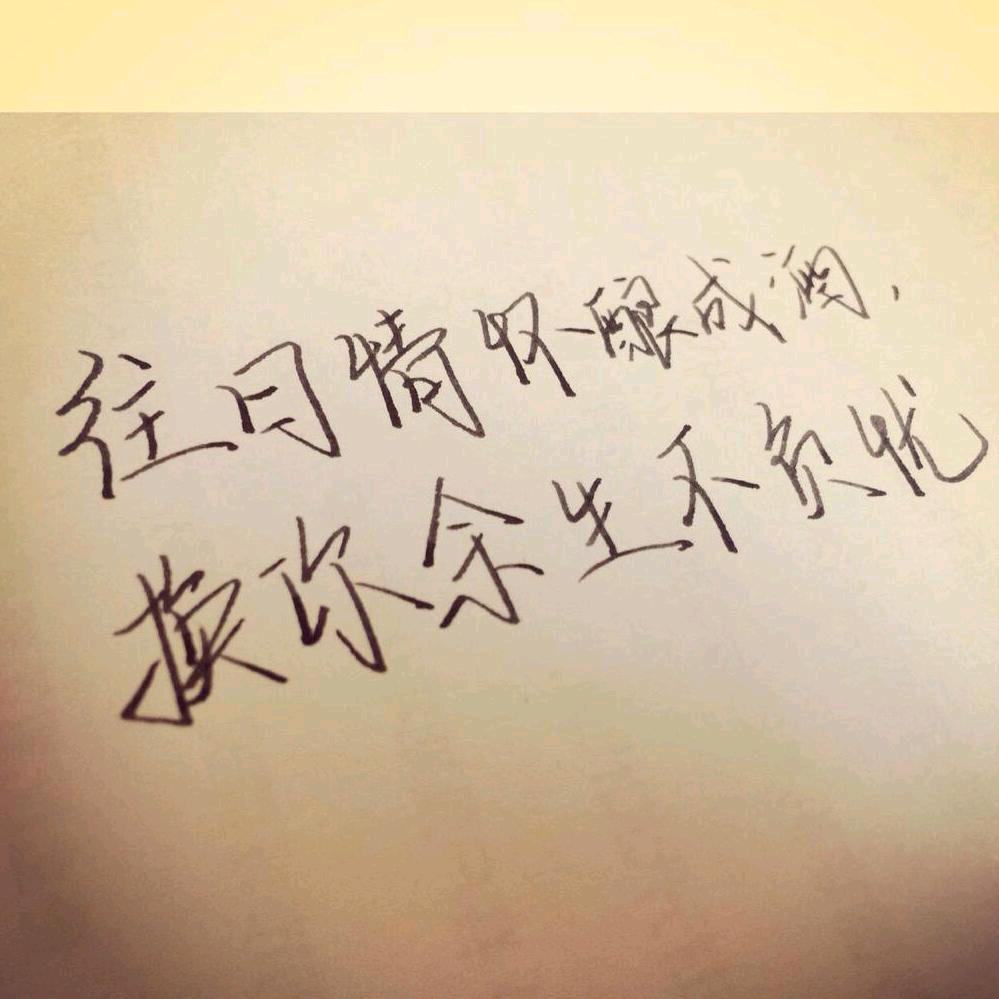 往日情怀酿成酒，
换你余生不负忧